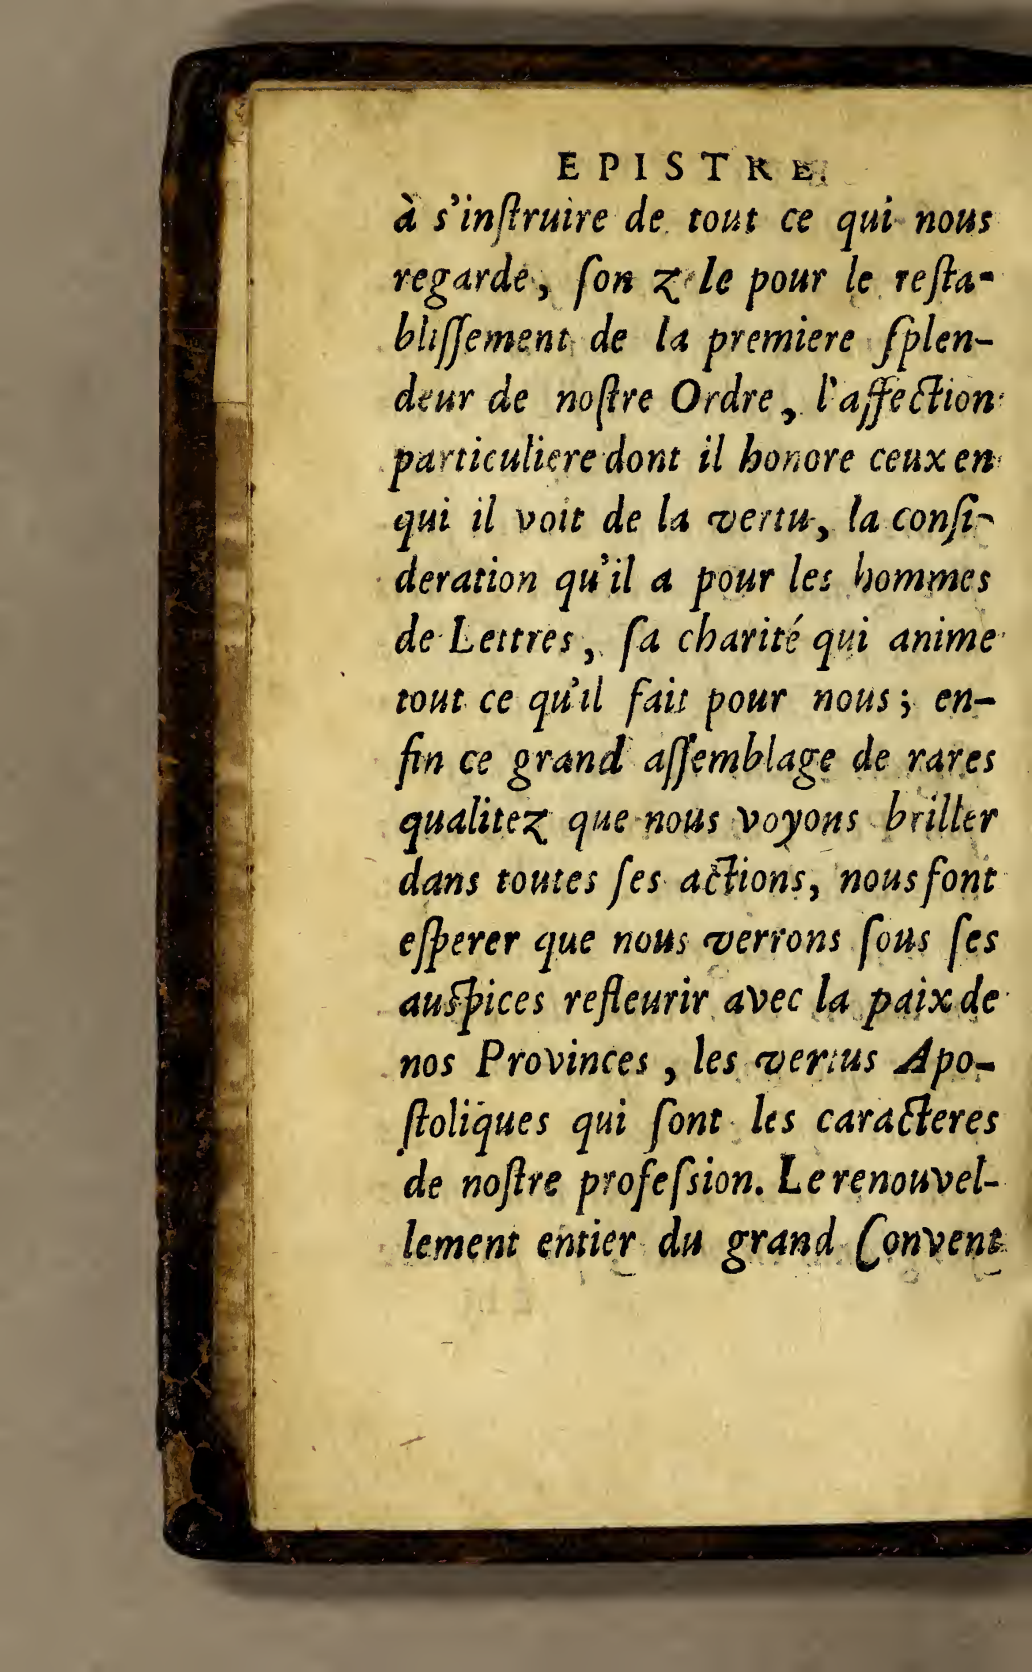 EPISTRE.
à s'inſtruire de tout ce qui nous
regarde, ſon zele pour le reſta-
bliſſement de la premiere ſplen-
deur de noſtre Ordre, l'affection
particuliere dont il honore ceux en
qui il voit de la vertu, la conſi-
deration qu'il a pour les hommes
de Lettres, ſa charité qui anime
tout ce qu'il fait pour nous; en-
fin ce grand aſſemblage de rares
qualitez que nous voyons briller
dans toutes ſes actions, nous font
eſperer que nous verrons ſous ſes
auſpices refleurir avec la paix de
nos Provinces, les vertus Apo-
ſtoliques qui ſont les caracteres
de noſtre profeſsion. Le renouvel-
lement entier du grand Convent